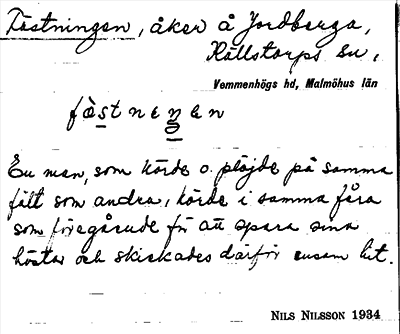 Fästningen, åker å Jordberga,
Källstorps sn,
Vemmenhögs hd, Malmöhus län
fæ̀stneŋen
En man, som körde o. plöjde på samma
fält som andra, körde i samma fåra
som föregående för att spara sina
hästar och skickades därför ensam hit.
NILS NILSSON 1934